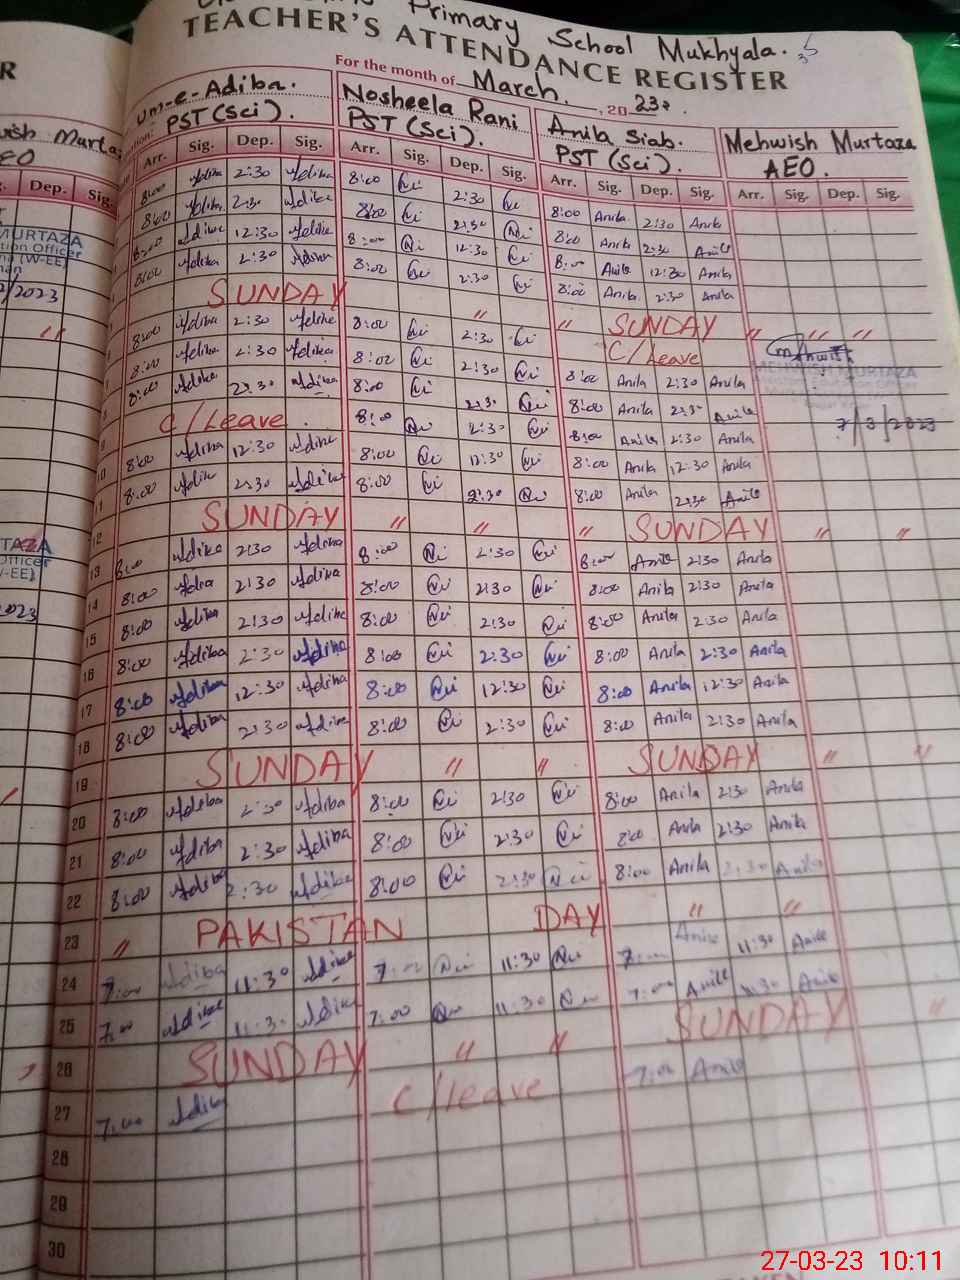 Primary School Mukhyala.
TEACHER'S ATTENDANCE REGISTER
For the month of March. , 20 23.
Um-e-Adiba. Nosheela Rani Anila Siab. Mehwish Murtaza
PST (Sci). PST (Sci). PST (Sci). AEO.
Arr. Sig. Dep. Sig. Arr. Sig. Dep. Sig. Arr. Sig. Dep. Sig. Arr. Sig. Dep. Sig.
8:00 Adiba 2:30 Adiba 8:00 2:30 8:00 Anila 2:30 Anila
8:00 Adiba 2:30 Adiba 8:00 2:30 8:00 Anila 2:30 Anila
8:00 Adiba 12:30 Adiba 8:00 12:30 8:00 Anila 12:30 Anila
8:00 Adiba 2:30 Adiba 8:00 2:30 8:00 Anila 2:30 Anila
SUNDAY " " SUNDAY " " "
8:00 Adiba 2:30 Adiba 8:00 2:30 C/Leave
8:00 Adiba 2:30 Adiba 8:00 2:30 8:00 Anila 2:30 Anila MEHWISH MURTAZA
8:00 Adiba 2:30 Adiba 8:00 2:30 8:00 Anila 2:30 Anila 7/3/2023
C/Leave 8:00 2:30 8:00 Anila 2:30 Anila
8:00 Adiba 12:30 Adiba 8:00 12:30 8:00 Anila 12:30 Anila
8:00 Adiba 2:30 Adiba 8:00 2:30 8:00 Anila 2:30 Anila
12 SUNDAY " " " SUNDAY " "
13 8:00 Adiba 2:30 Adiba 8:00 2:30 8:00 Anila 2:30 Anila
14 8:00 Adiba 2:30 Adiba 8:00 2:30 8:00 Anila 2:30 Anila
15 8:00 Adiba 2:30 Adiba 8:00 2:30 8:00 Anila 2:30 Anila
16 8:00 Adiba 2:30 Adiba 8:00 2:30 8:00 Anila 2:30 Anila
17 8:00 Adiba 12:30 Adiba 8:00 12:30 8:00 Anila 12:30 Anila
18 8:00 Adiba 2:30 Adiba 8:00 2:30 8:00 Anila 2:30 Anila
19 SUNDAY " " SUNDAY " "
20 8:00 Adiba 2:30 Adiba 8:00 2:30 8:00 Anila 2:30 Anila
21 8:00 Adiba 2:30 Adiba 8:00 2:30 8:00 Anila 2:30 Anila
22 8:00 Adiba 2:30 Adiba 8:00 2:30 8:00 Anila 2:30 Anila
23 " PAKISTAN DAY " "
24 7:00 Adiba 11:30 Adiba 7:00 11:30 7:00 Anila 11:30 Anila
25 7:00 Adiba 11:30 Adiba 7:00 11:30 7:00 Anila 11:30 Anila
26 SUNDAY " " SUNDAY "
27 7:00 Adiba C/leave 7:00 Anila
28
29
30
27-03-23 10:11